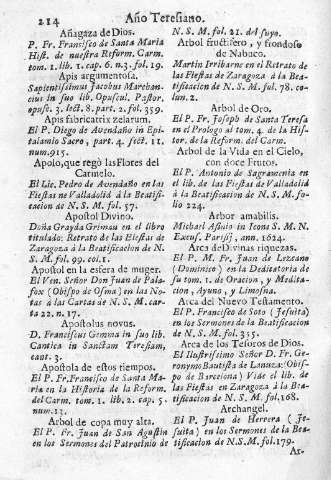 214 Año Teresiano.
Añagaza de Dios.
P. Fr. Francisco de Santa Maria
Hist. de nuestra Reform. Carm.
tom. 1. lib. 1. cap. 6. n. 3. fol. 19.
Apis argumentosa.
Sapientissimus Jacobus Marchan-
cius in suo lib. Opuscul. Pastor.
opusc. 3. sect. 8. part. 2. fol. 359.
Apis fabricatrix zelarum.
El P. Diego de Avendaño in Epi-
talamio Sacro, part. 4. sect. 11.
num. 915.
Apolo, que regò las Flores del
Carmelo.
El Lic. Pedro de Avendaño en las
Fiestas de Valladolid à la Beatifi-
cacion de N. S. M. fol. 57.
Apostol Divino.
Doña Grayda Grimau en el libro
titulado: Retrato de las Fiestas de
Zaragoza à la Beatificacion de N.
S. M. fol. 99. col. 1.
Apostol en la esfera de muger.
El Ven. Señor Don Juan de Pala-
fox (Obispo de Osma) en las No-
tas à las Cartas de N. S. M. car-
ta 22. n. 17.
Apostolus novus.
D. Franciscus Gemma in suo lib.
Cantica in Sanctam Teresiam,
cant. 3.
Apostola de estos tiempos.
El P. Fr. Francisco de Santa Ma-
ria en la Historia de la Reform.
del Carm. tom. 1. lib. 2. cap. 5.
num. 11.
Arbol de copa muy alta.
El P. Fr. Juan de San Agustin
en los Sermones del Patrocinio de
N. S. M. fol. 21. del suyo.
Arbol fructifero, y frondoso
de Nabuco.
Martin Irribarne en el Retrato de
las Fiestas de Zaragoza à la Bea-
tificacion de N. S. M. fol. 78. co-
lun. 2.
Arbol de Oro.
El P. Fr. Joseph de Santa Teresa
en el Prologo al tom. 4. de la His-
tor. de la Reform. del Carm.
Arbol de la Vida en el Cielo,
con doce Frutos.
El P. Antonio de Sagramenia en
el lib. de las Fiestas de Valladolid
à la Beatificacion de N. S. M. fo-
lio 224.
Arbor amabilis.
Michael Asinio in Icons S. M. N.
Excus. Parisij, ann. 1624.
Arca de Divinas riquezas.
El P. M. Fr. Juan de Lezcano
(Dominico) en la Dedicatoria de
su tom. 1. de Oracion, y Medita-
cion, Ayuno, y Limosna.
Arca del Nuevo Testamento.
El P. Francisco de Soto (Jesuita)
en los Sermones de la Beatificacion
de N. S. M. fol. 355.
Arca de los Tesoros de Dios.
El Ilustrissimo Señor D. Fr. Ge-
ronymo Bautista de Lanuza (Obis-
po de Barcelona) Vide el lib. de
las Fiestas en Zaragoza à la Bea-
tificacion de N. S. M. fol. 168.
Archangel.
El P. Juan de Herrera (Je-
suita) en los Sermones de la Bea-
tificacion de N. S. M. fol. 179.
Ar-